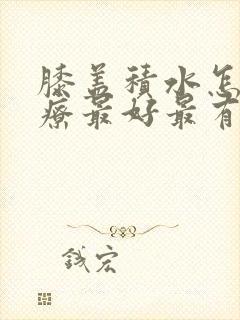 膝盖積水怎
療最好最有
錢宏